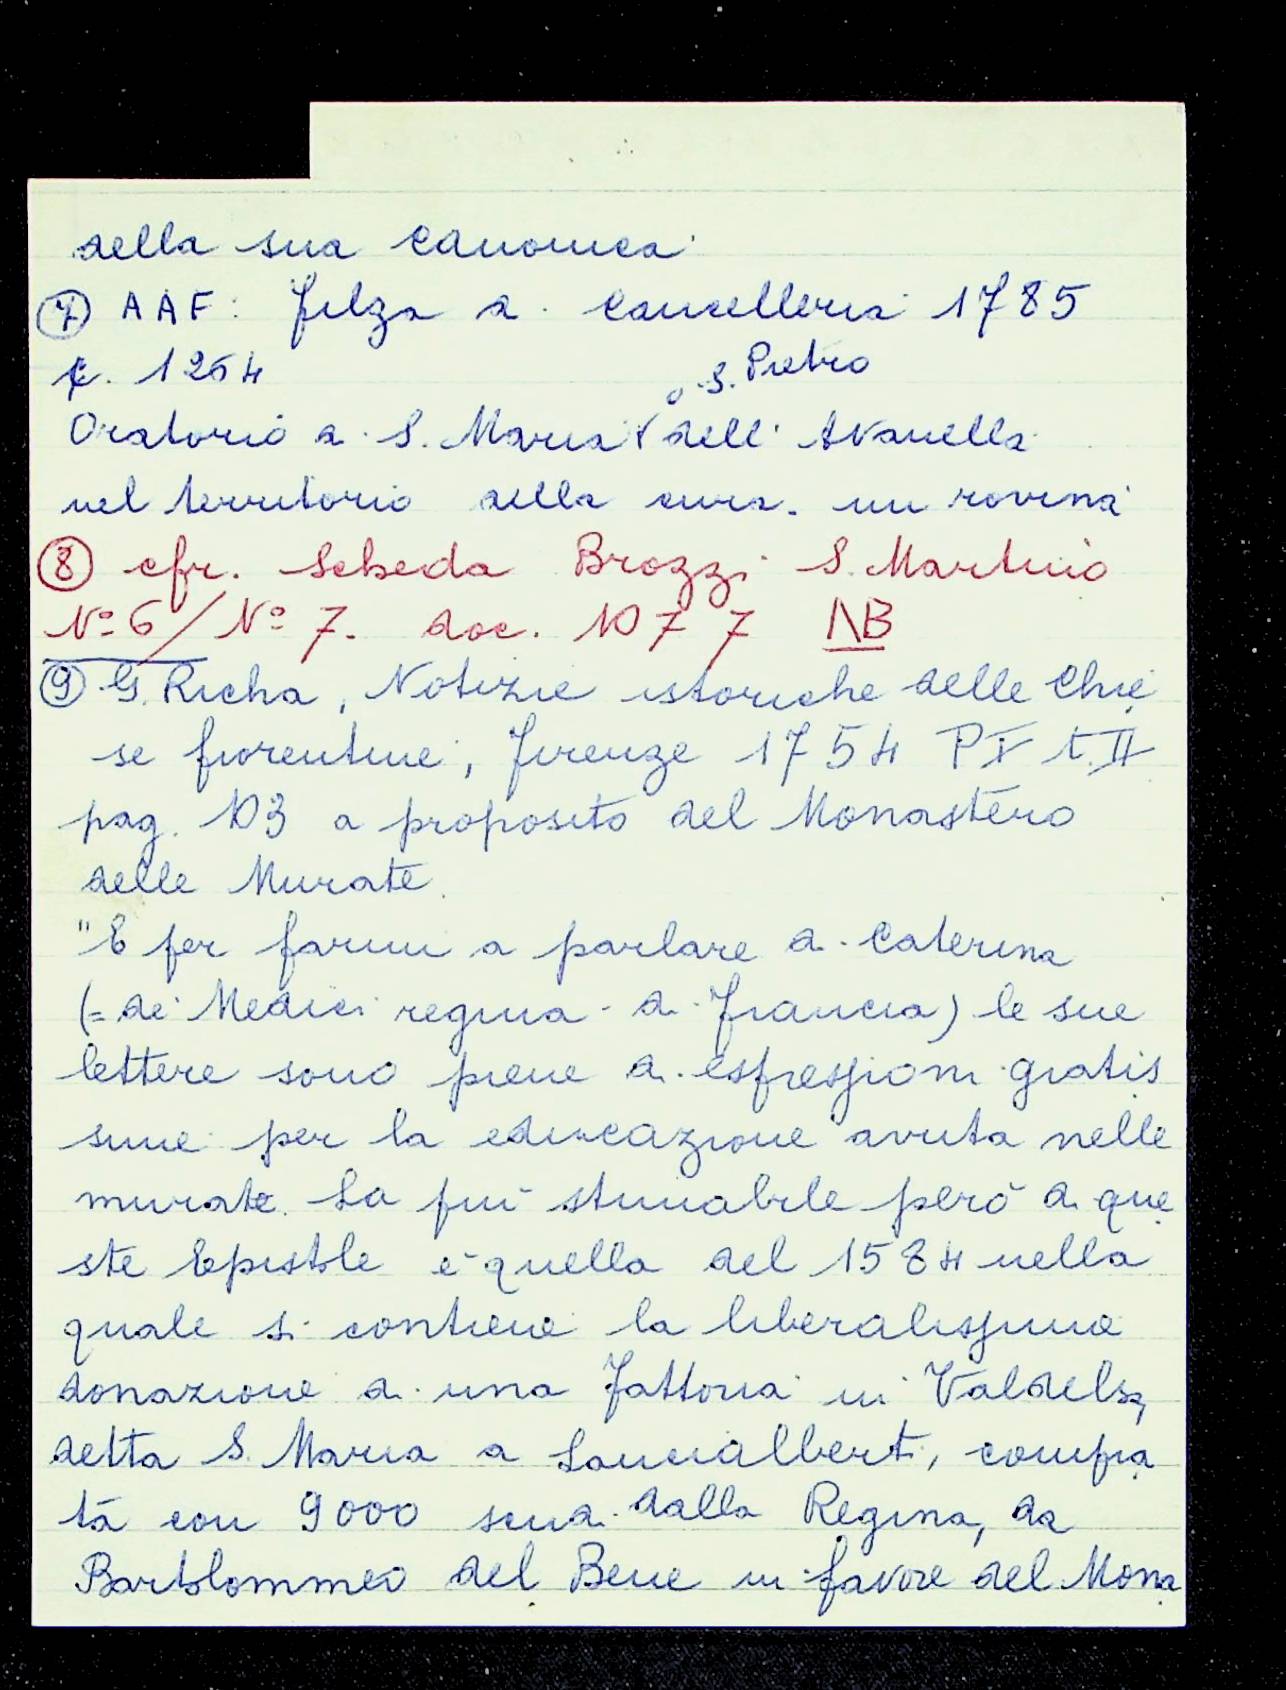 della sua canonica.
⑦ AAF: filza di cancelleria 1785
c. 1264
o S. Pietro
Oratorio di S. Maria dell'Avanella
nel territorio della cura. in rovina
⑧ cfr. Scheda Brozzi S. Martino
N° 6 / N° 7. doc. 1077 NB
⑨ G. Richa, Notizie istoriche delle Chie
se fiorentine, Firenze 1754 P I t. II
pag. 103 a proposito del Monastero
delle Murate.
"E per farmi a parlare di Caterina
(= de' Medici regina di Francia) le sue
lettere sono piene di espressioni gratis
sime per la educazione avuta nelle
murate. La più stimabile però di que
ste Epistole è quella del 1584 nella
quale si contiene la liberalissima
donazione di una Fattoria in Valdelsa,
detta S. Maria a Lancialberti, compra
ta con 9000 scudi dalla Regina, da
Bartolommeo del Bene in favore del Mona